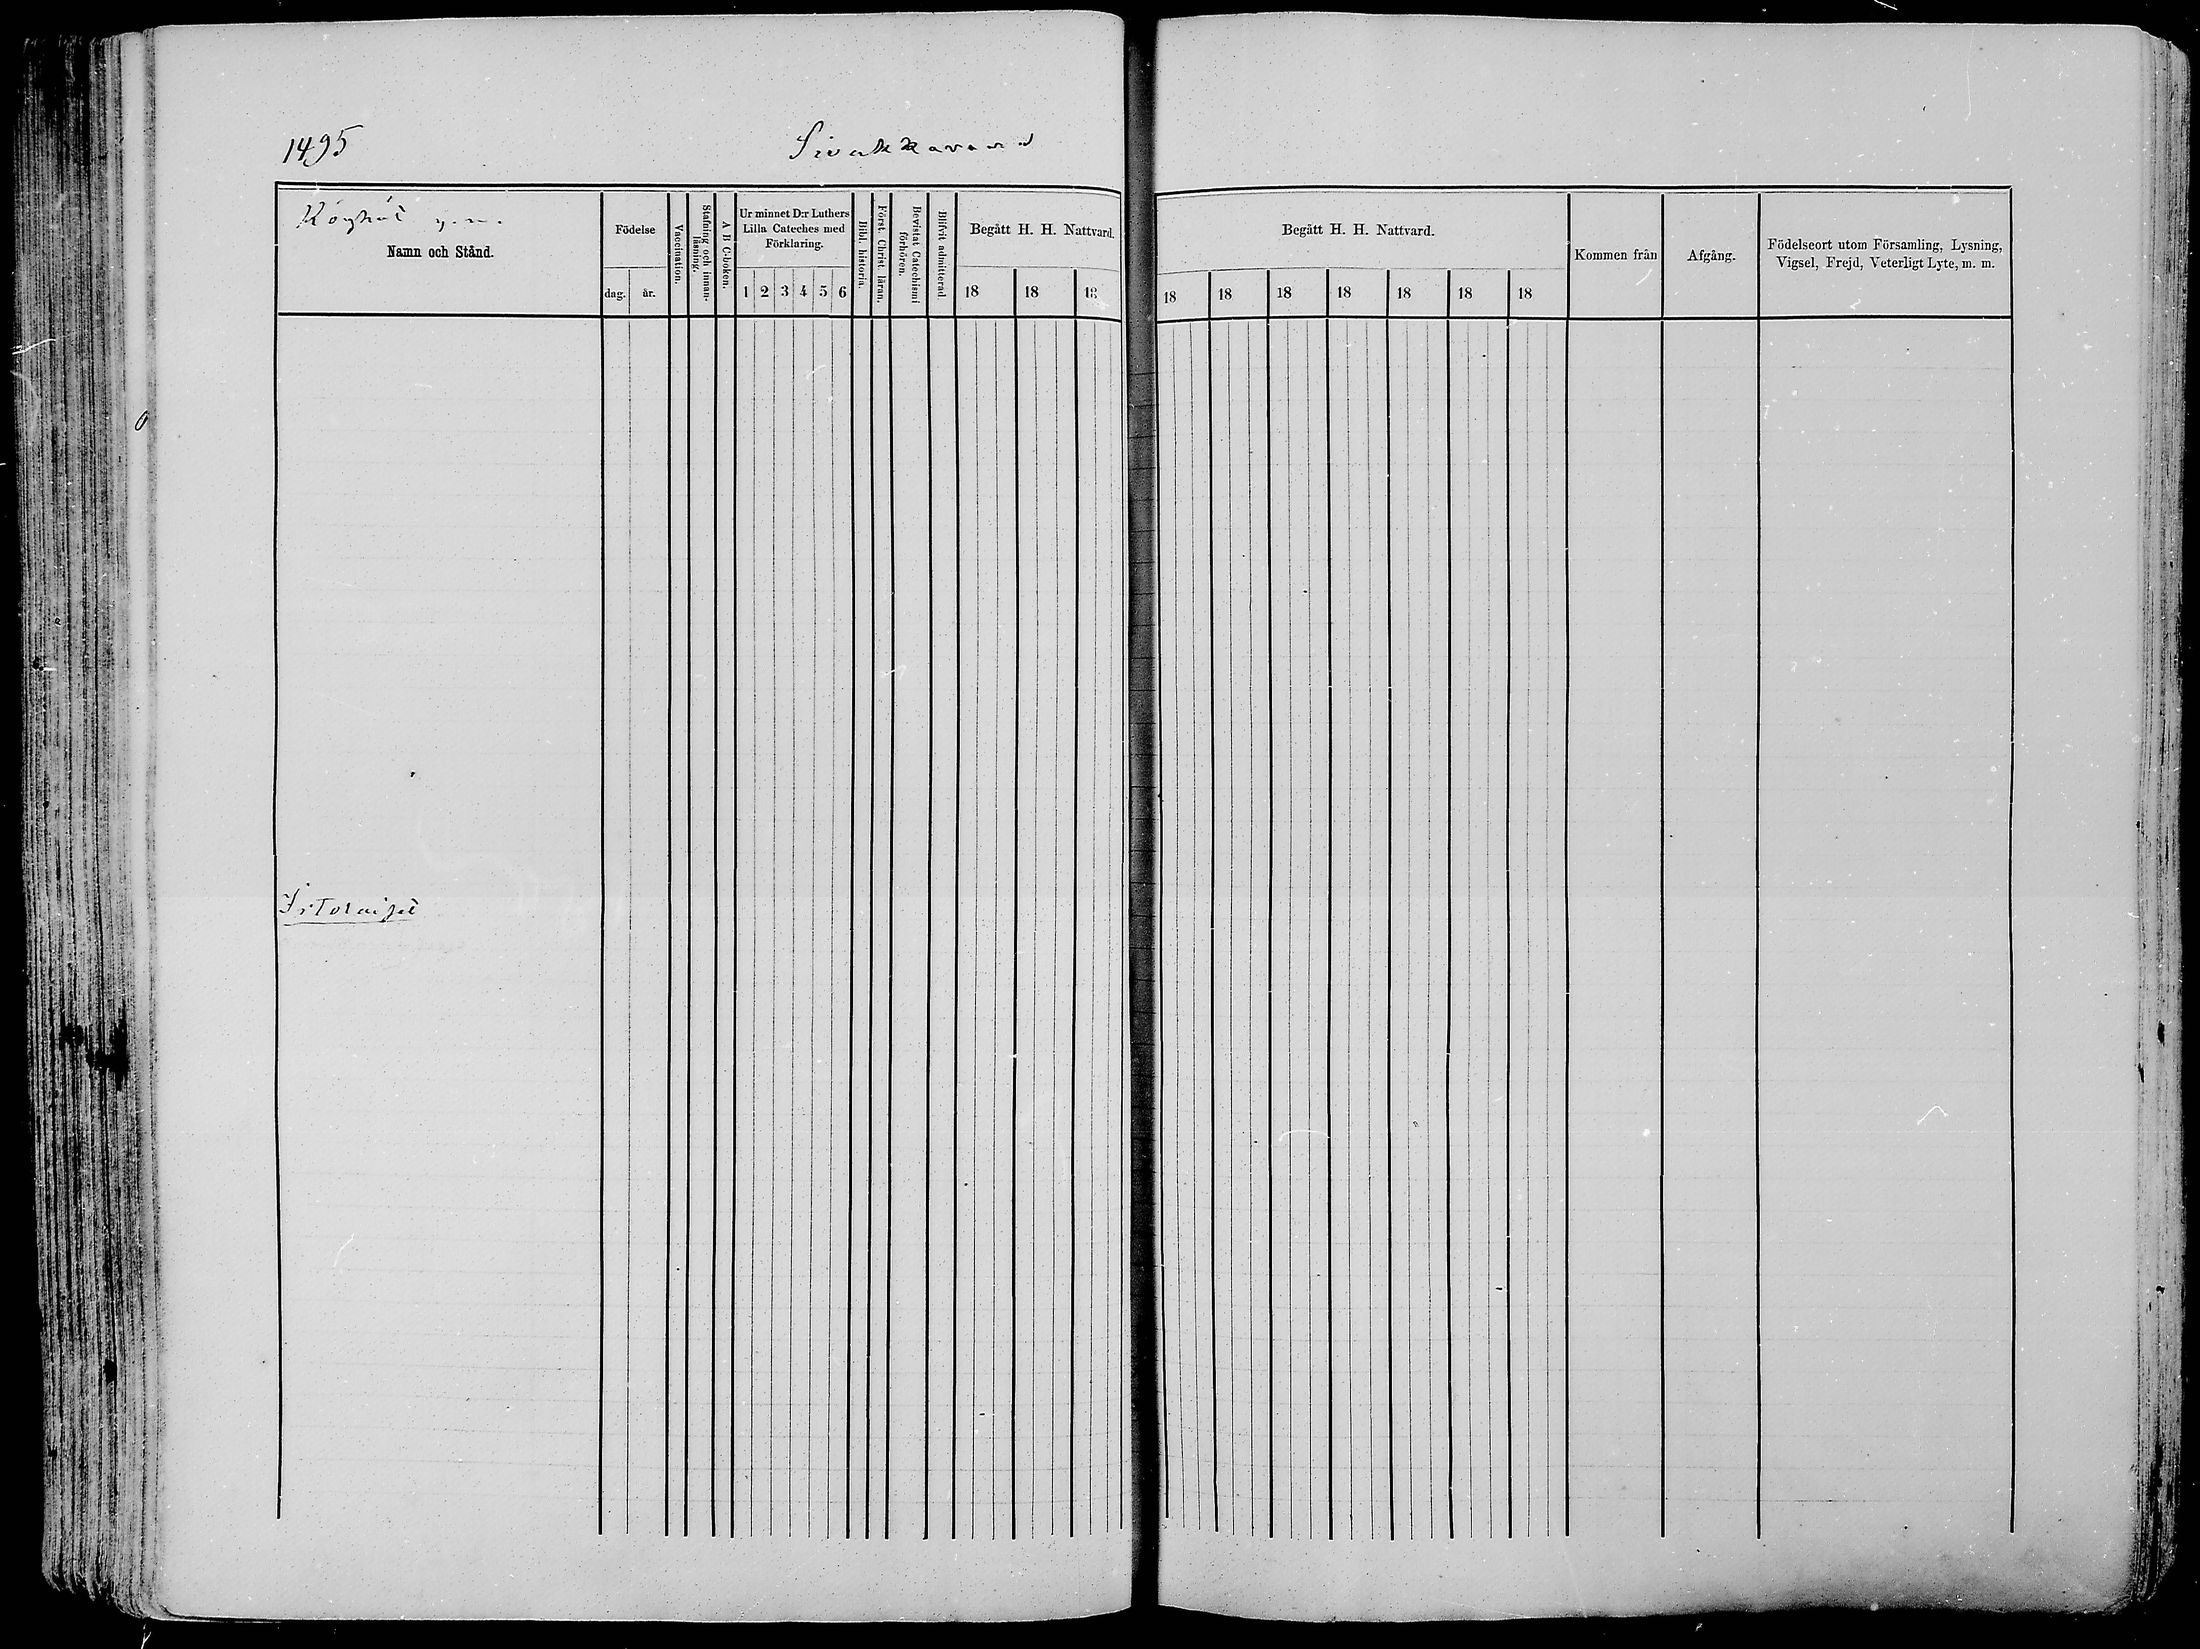 1495 Sivakkavaara
Köyhät y.m.
Namn och Stånd.
Födelse
dag. år.
Vaccination.
Stafning och innan-
läsning.
A B C-boken.
Ur minnet D:r Luthers
Lilla Cateches med
Förklaring.
1 2 3 4 5 6
Bibl. historia.
Först. Christ. läran.
Bevistat Catechismi
förhören.
Blifvit admitterad.
Begått H. H. Nattvard.
18 18 18
Begått H. H. Nattvard.
18 18 18 18 18 18 18
Kommen från
Afgång.
Födelseort utom Församling, Lysning,
Vigsel, Frejd, Veterligt Lyte, m. m.
Irtolaiset